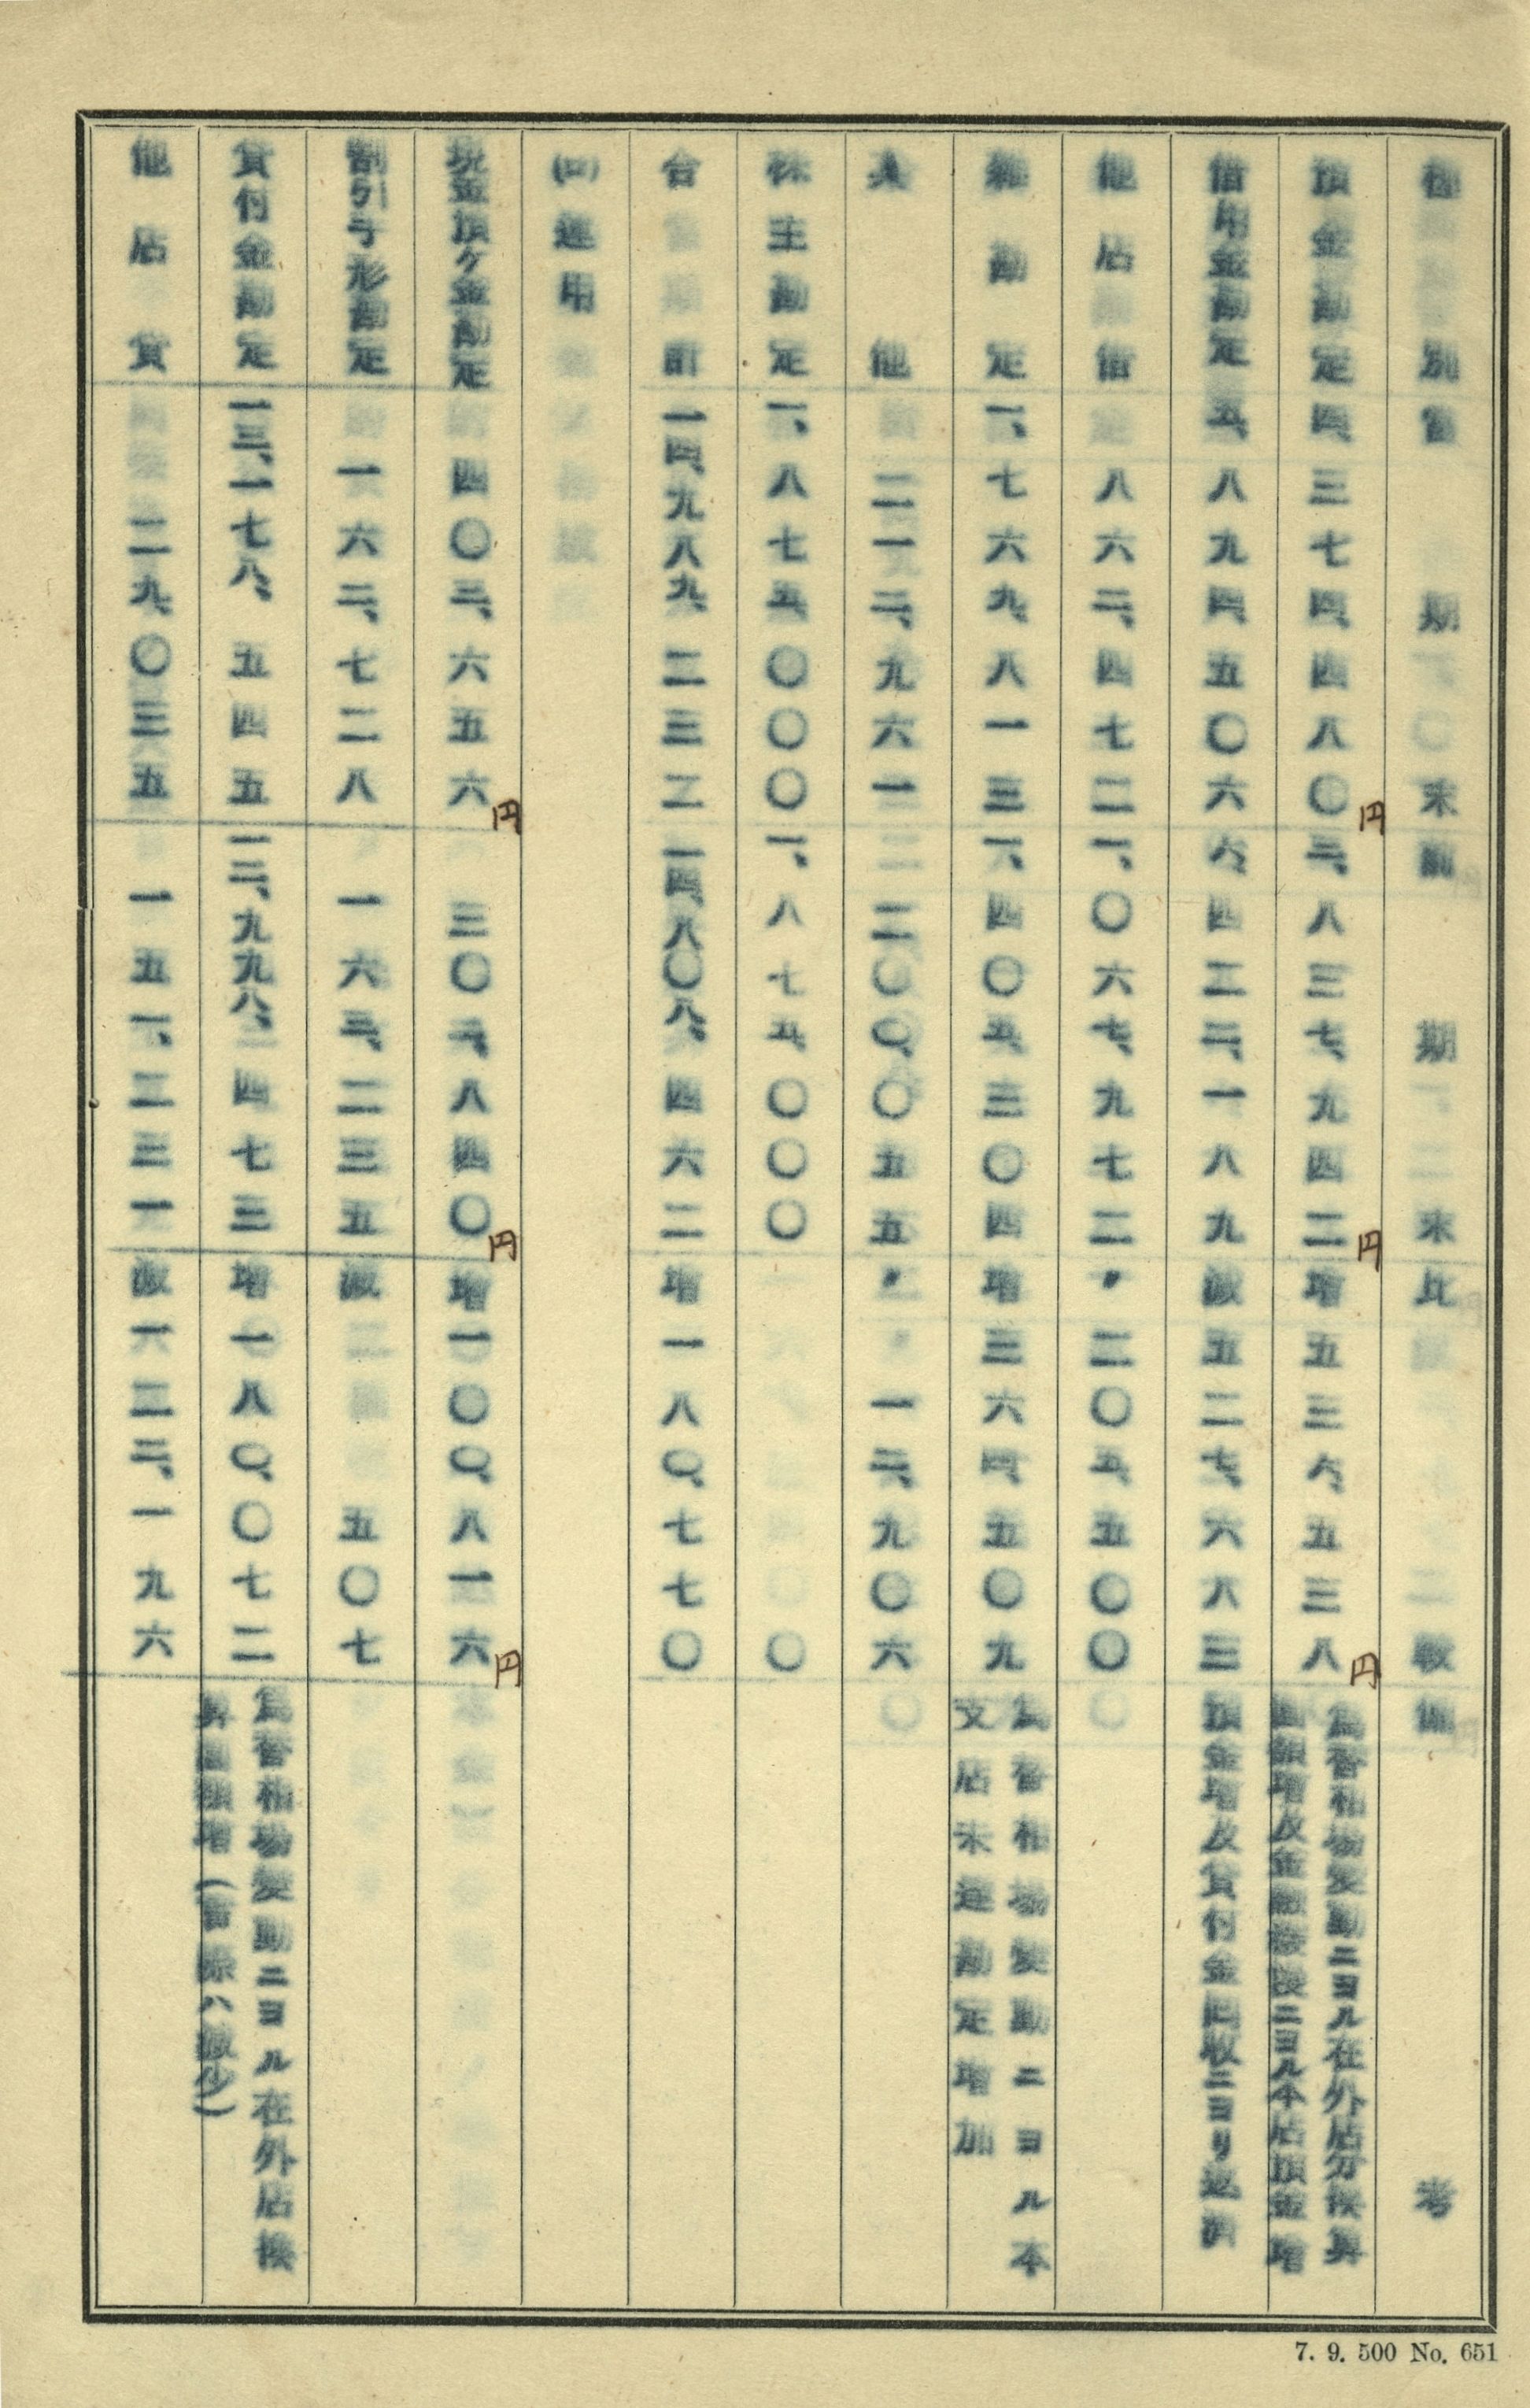 種別 當期末 前期末 比較 備考
預金勘定 四、三七四、四八〇円 三、八三七、九四二円 増五三六、五三八円 爲替相場變動ニヨル在外店分換算
圓額増及金融緩慢ニヨル本店預金増
借用金勘定 五、八九四、五〇六 六、四二二、一八九 減五二七、六八三 預金増及貸付金回收ニヨリ返濟
他店借 八六二、四七二 一、〇六七、九七二 〃二〇五、五〇〇
雜勘定 一、七六九、八一三 一、四〇五、三〇四 増三六四、五〇九 爲替相場變動ニヨル本
支店未達勘定増加
其他 二一二、九六一 二〇〇、〇五五 〃一二、九〇六
株主勘定 一、八七五、〇〇〇 一、八七五、〇〇〇 〇
合計 一四、九八九、二三二 一四、八〇八、四六二 増一八〇、七七〇
(ロ)運用
現金預ケ金勘定 四〇三、六五六円 三〇二、八四〇円 増一〇〇、八一六円
割引手形勘定 一六二、七二八 一六三、二三五 減五〇七
貸付金勘定 一三、一七八、五四五 一二、九九八、四七三 増一八〇、〇七二 爲替相場變動ニヨル在外店換
算圓額増(實際ハ減少)
他店貸 二九、〇三五 一五一、二三一 減一二二、一九六
7. 9. 500 No. 651